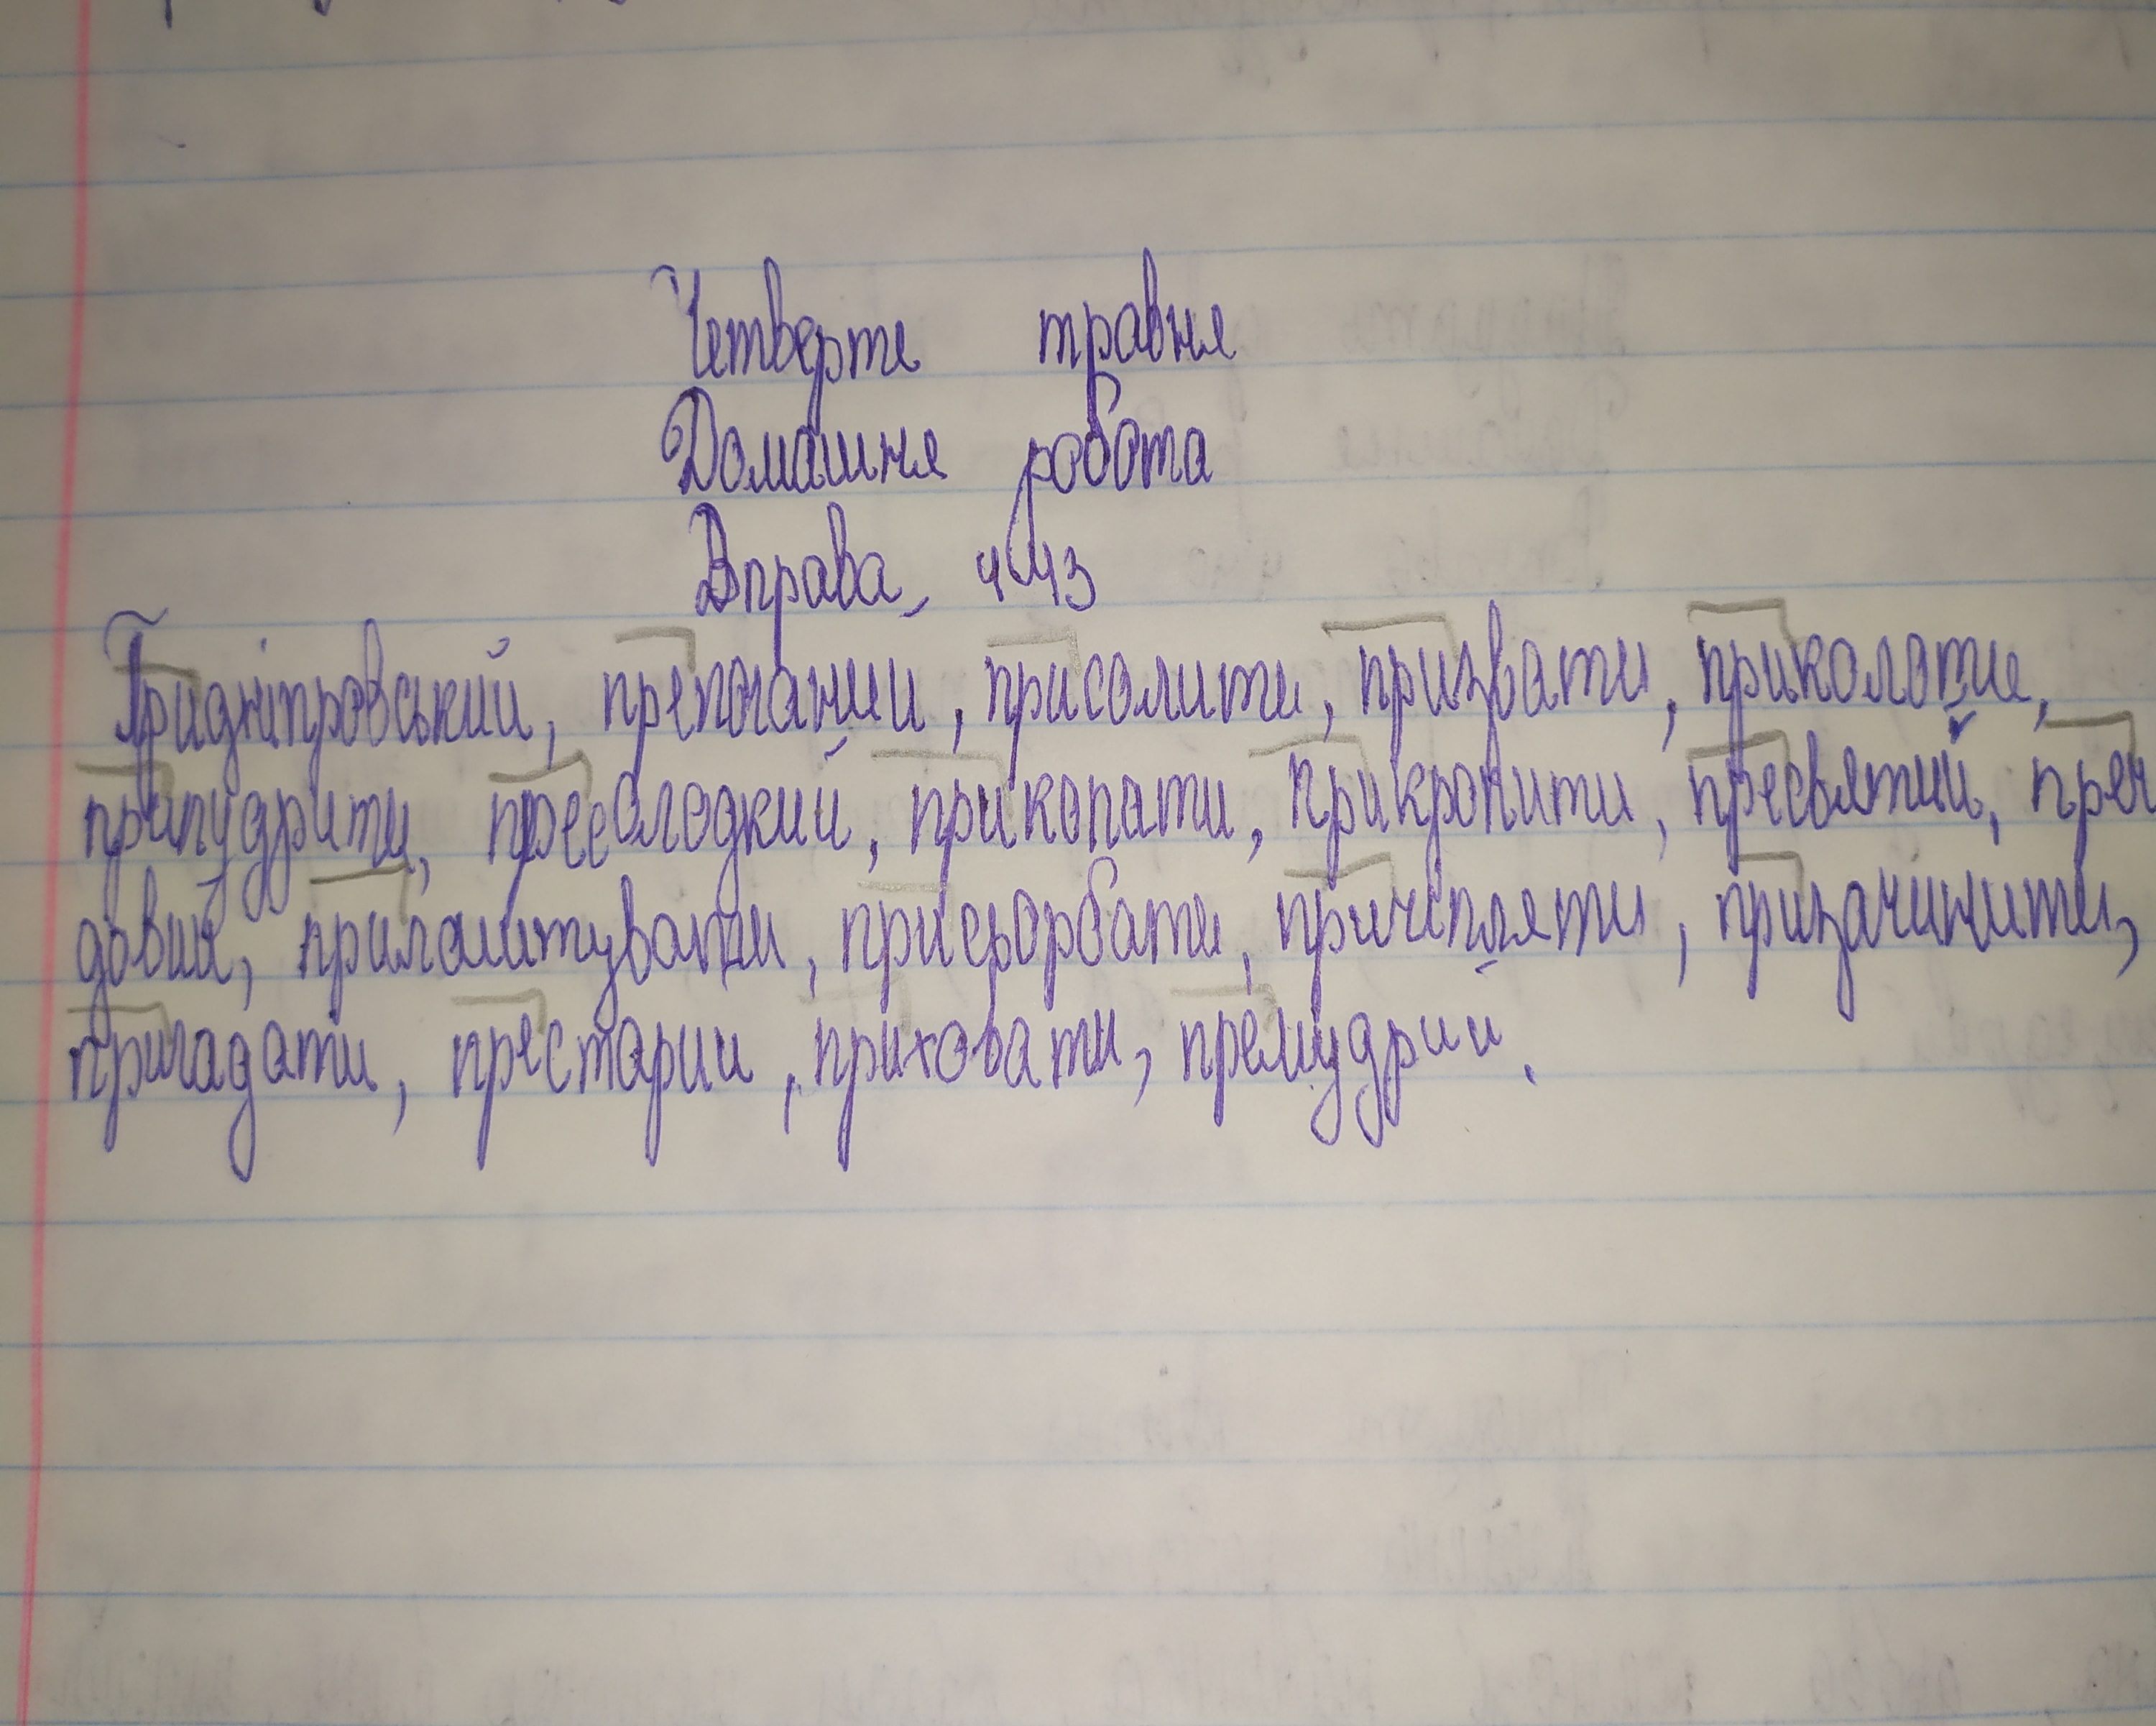 Четверте травня
Домашня робота
Вправа 443
Придніпровський, препоганий, присолити, призвати, приколоти,
припудрити, пресолодкий, прикопати, прикропити, пресвятий, преч
довий, прилаштувати, присьорбати, причіпляти, призачинити,
пригадати, престарий, приховати, премудрий.